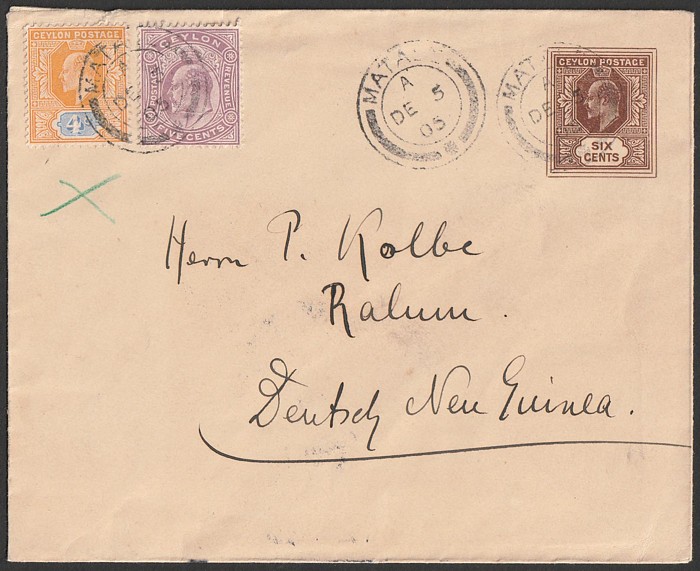 CEYLON POSTAGE
4
CEYLON
POSTAGE
REVENUE
FIVE CENTS
MATA
A
DE 5
05
MATA
A
DE 5
05
MATA
A
DE 5
CEYLON POSTAGE
SIX
CENTS
Herrn P. Kolbe
Ralum.
Deutsch Neu Guinea.